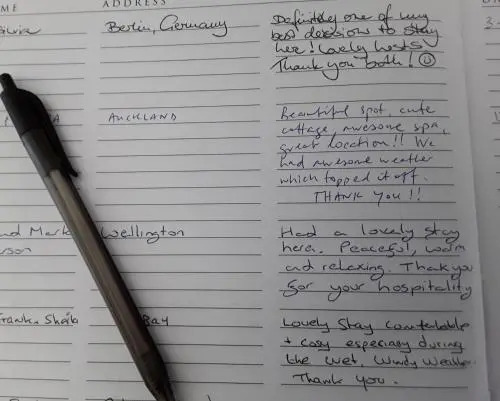 ME ADDRESS
Silvia Berlin, Germany
Definitely one of my
best decisions to stay
here! Lovely hosts
Thank you both! ☺
AUCKLAND
Beautiful spot, cute
cottage, awesome spa,
great location!! We
had awesome weather
which topped it off.
THANK YOU!!
nd Mark Wellington
erson
Had a lovely stay
here. Peaceful, warm
and relaxing. Thank you
for your hospitality
Frank & Sheila Bay
Lovely stay comfortable
+ cosy especially during
the wet, windy weather.
Thank you.